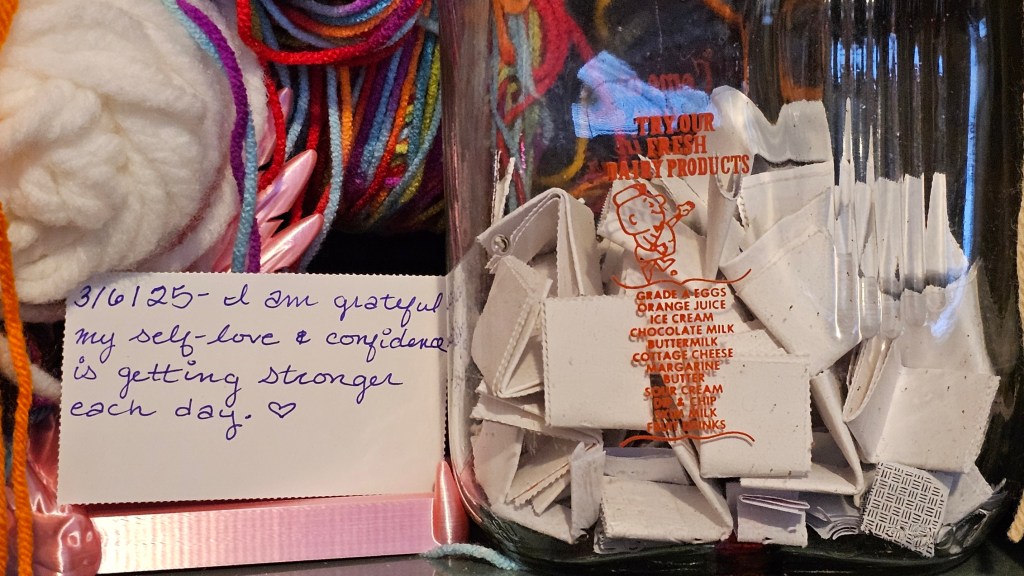 3/6/25- I am grateful
my self-love & confidence
is getting stronger
each day. ♡
TRY OUR
FRESH
DAIRY PRODUCTS
GRADE A EGGS
ORANGE JUICE
ICE CREAM
CHOCOLATE MILK
BUTTERMILK
COTTAGE CHEESE
MARGARINE
BUTTER
SOUR CREAM
& CHIP
MILK
FRUIT DRINKS